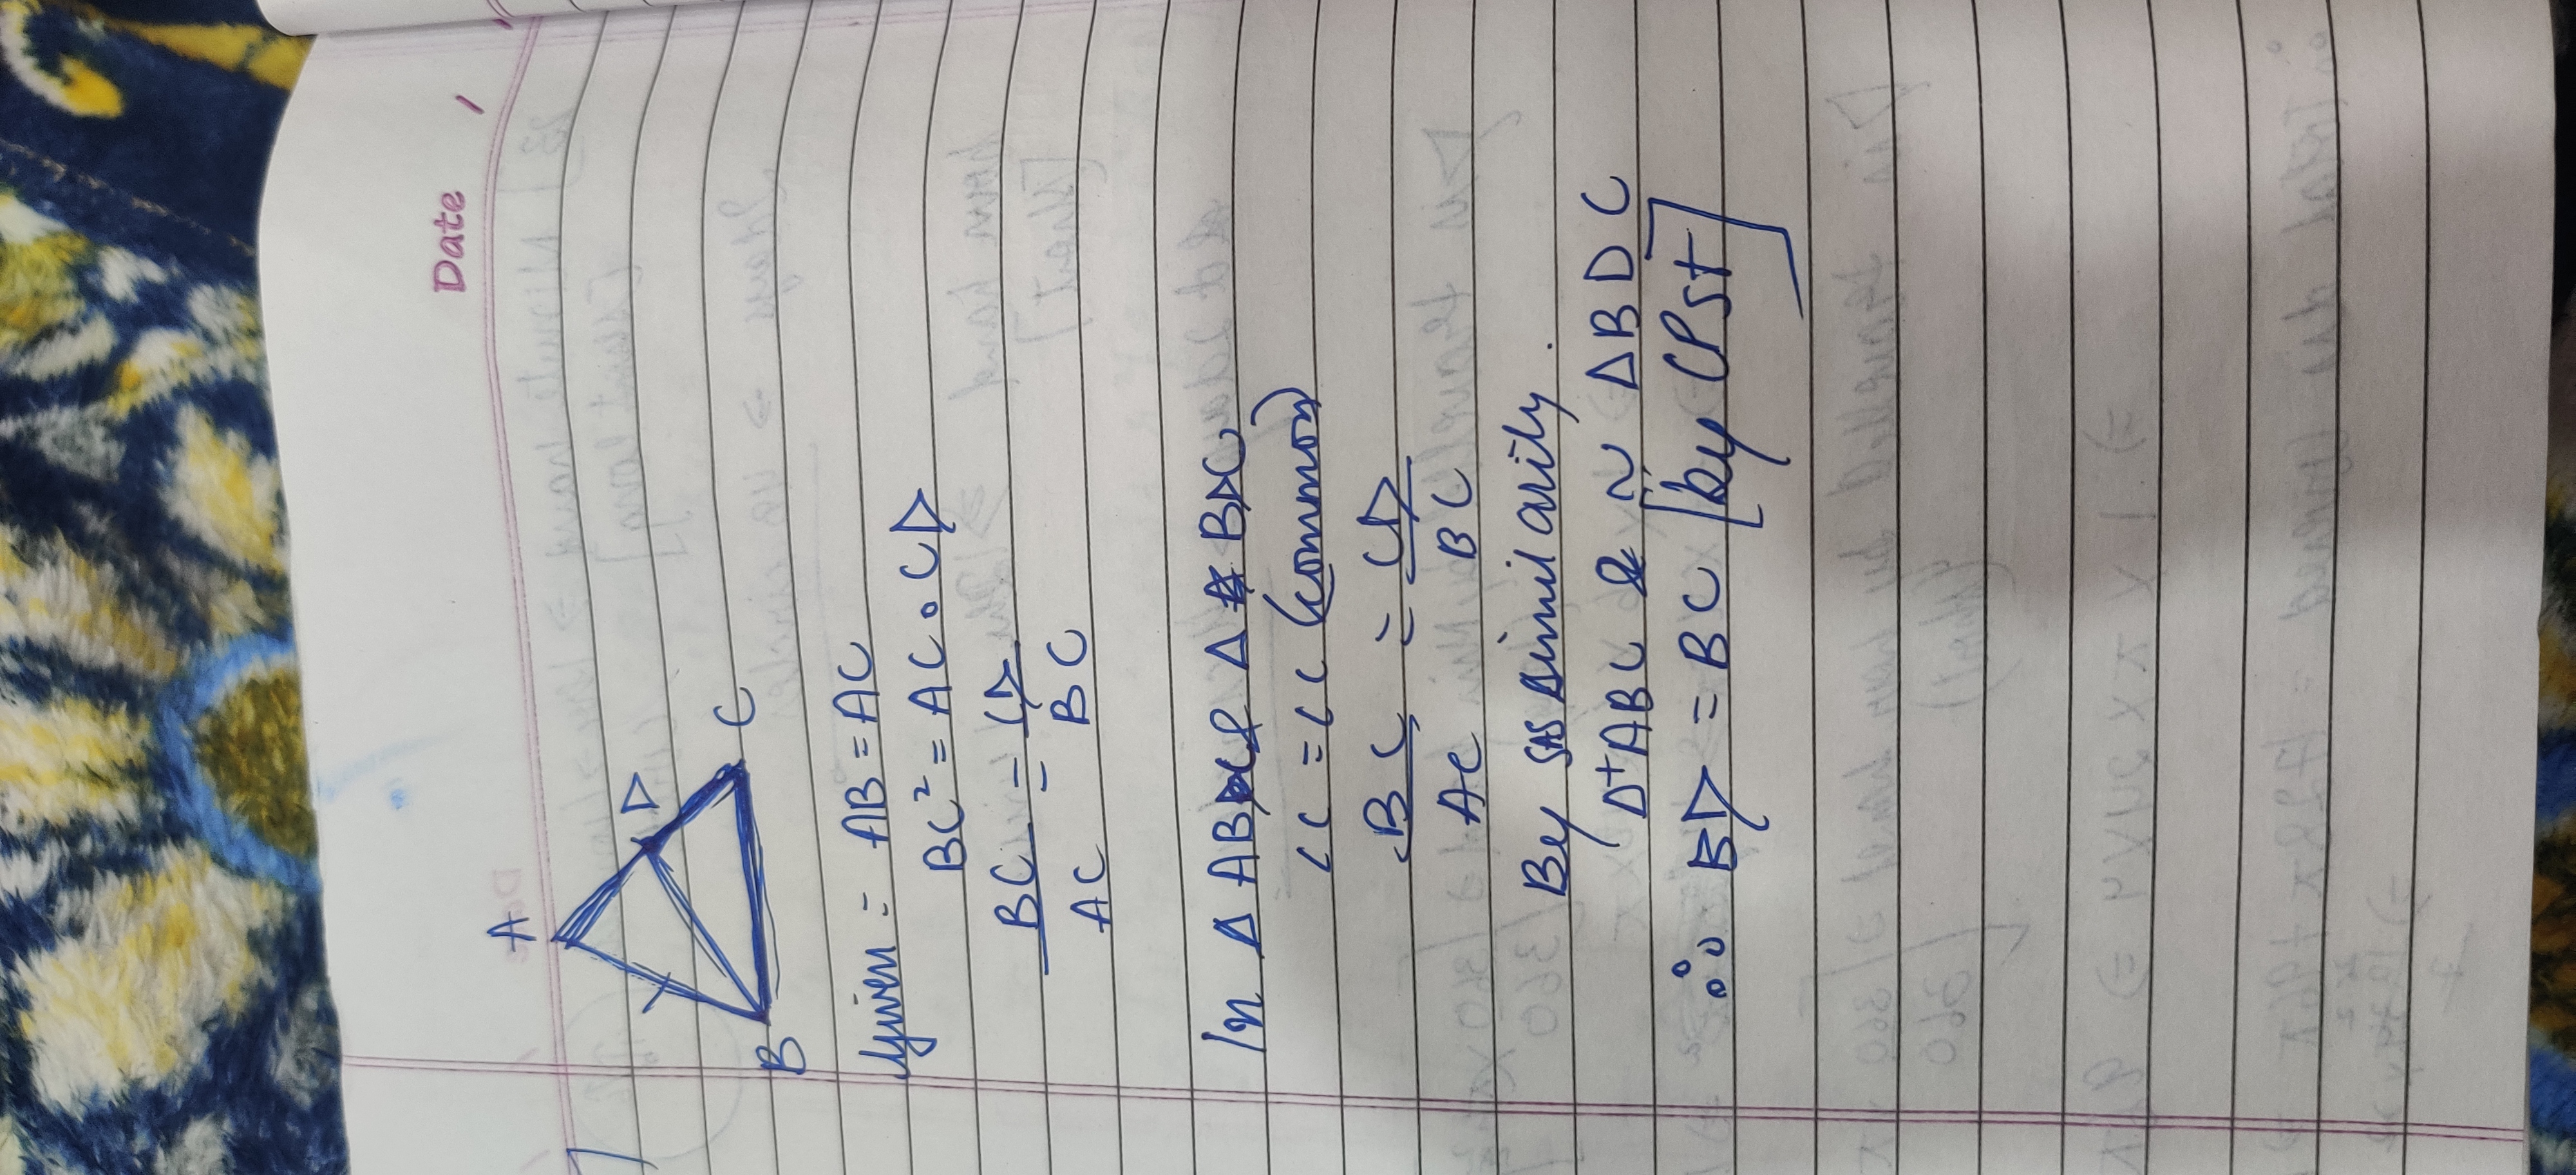 Date
A
D
B
C
Given = AB = AC
BC² = AC . CD
BC = CD
AC BC
In Δ ABC & Δ BDC
∠C = ∠C (common)
BC = CD
AC BC
By SAS similarity.
Δ ABC ~ Δ BDC
∴ BD = BC [by CPST]